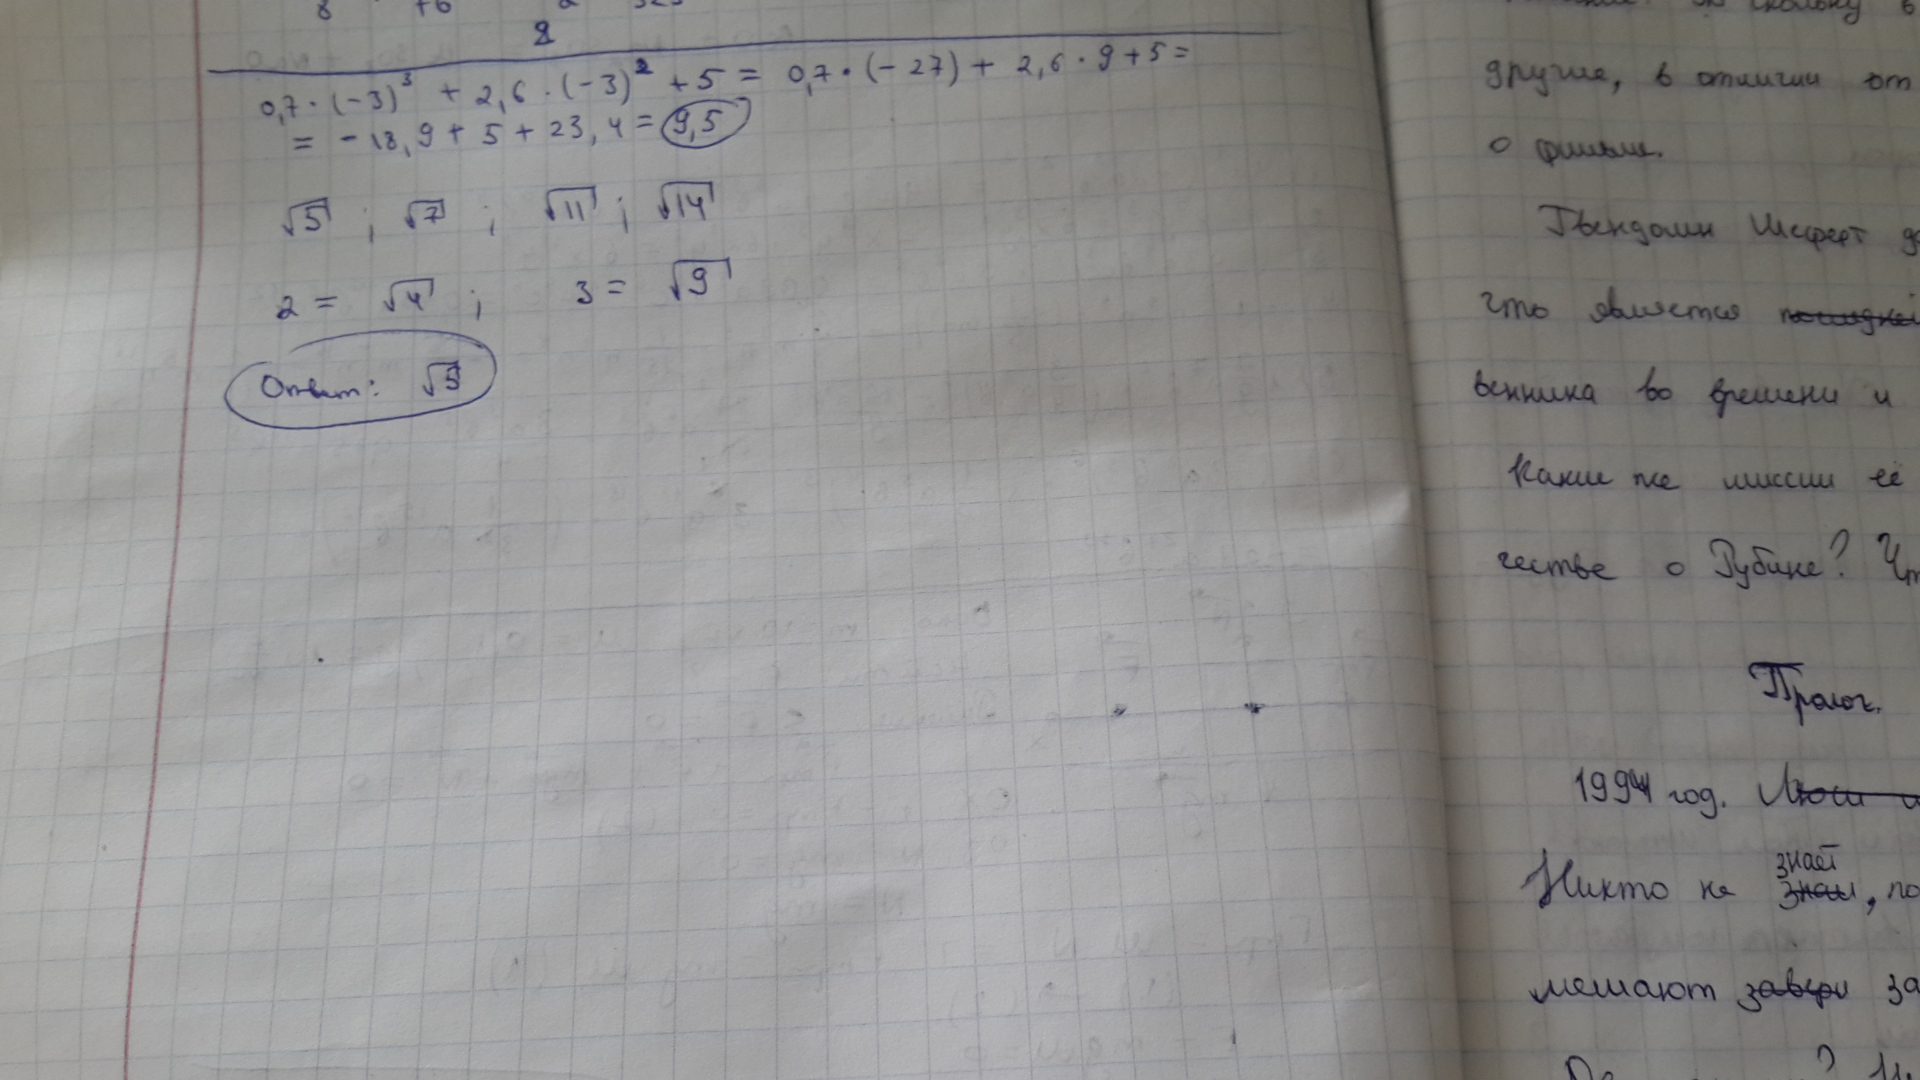 8 +6
2
0,7 · (-3)³ + 2,6 · (-3)² + 5 = 0,7 · (-27) + 2,6 · 9 + 5 =
= - 18,9 + 5 + 23,4 = 9,5
√5 ; √7 ; √11 ; √14
2 = √4 ; 3 = √9
Ответ: √5
другие, в отличии от
о фильме.
Гвендолин Шеферт
что является
венника во времени и
Какие же миссии её
честве о Рубине?
Пролог.
1994 год.
знает
Никто не знал, по
мешают завери за
?